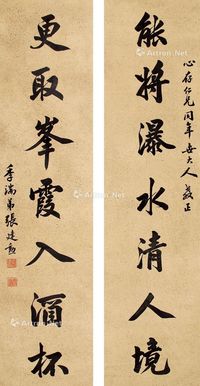 心存仁兄同年世大人教正
能将瀑水清人境
更取峯霞入酒杯
季端弟張建勳